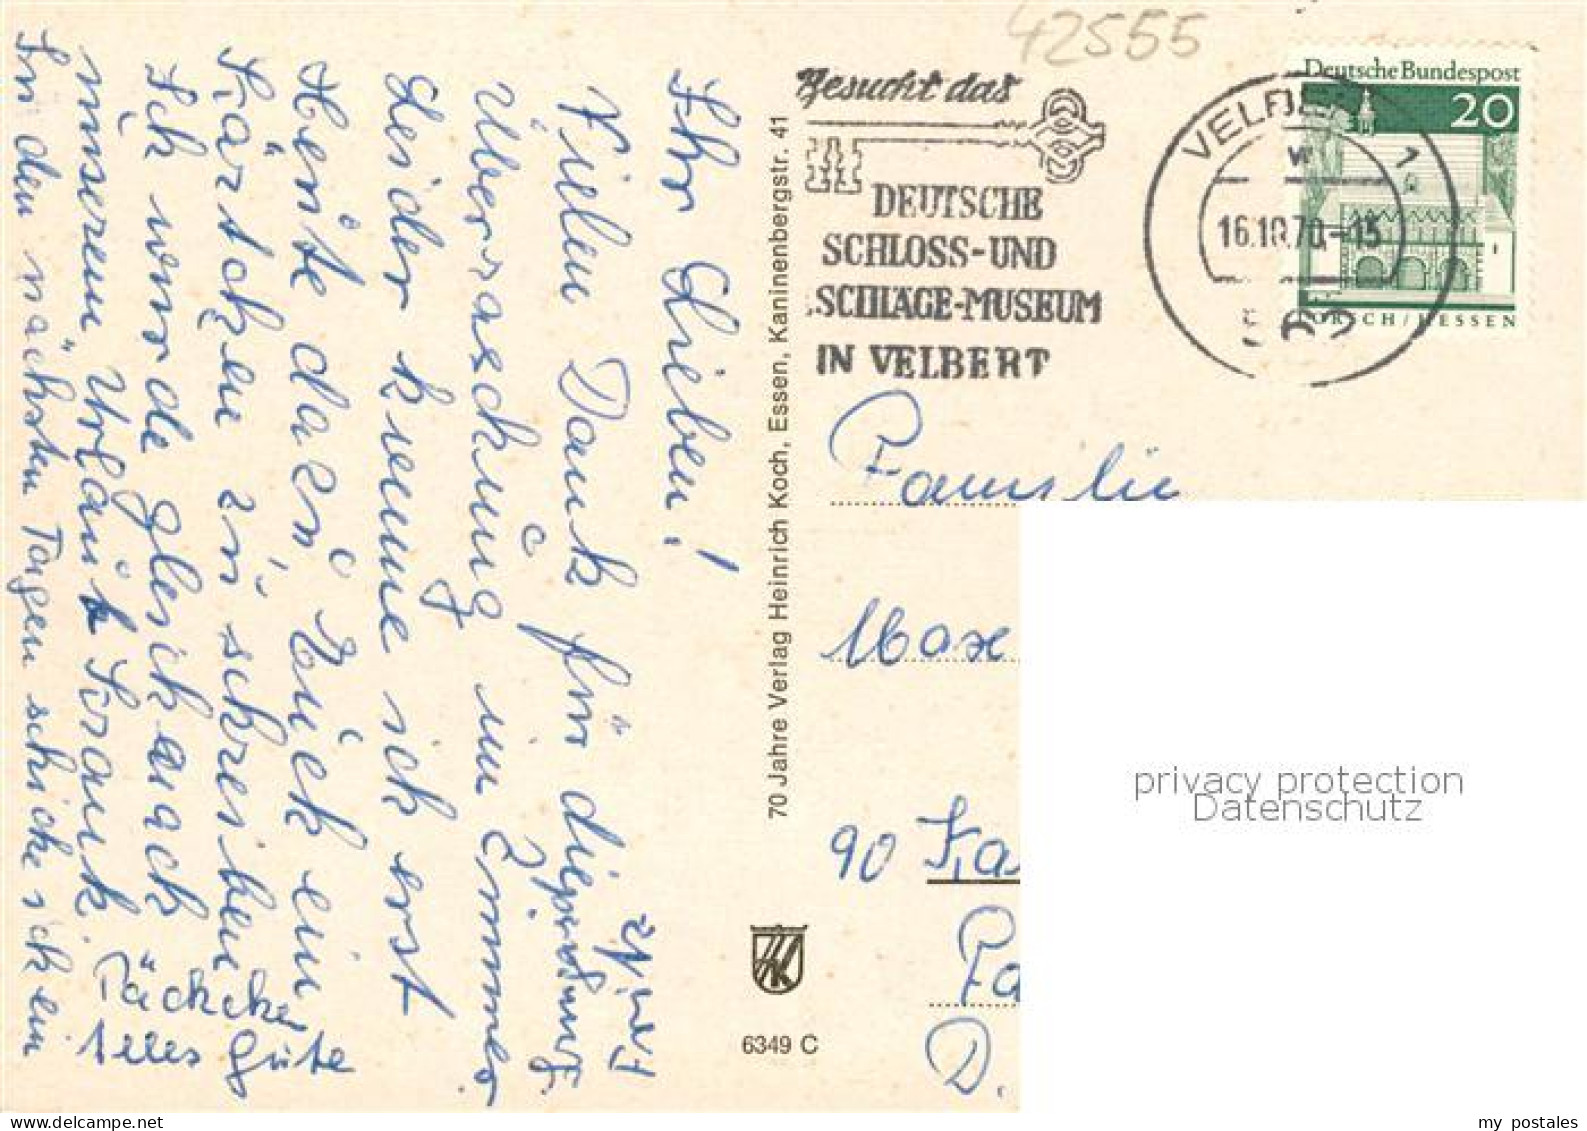 42555
Besucht das
DEUTSCHE
SCHLOSS-UND
SCHLÄGE-MUSEUM
IN VELBERT
VELBERT 1
16.10.70.-15
Deutsche Bundespost
20
LORSCH/HESSEN
Ihr Lieben!
Vielen Dank für die
Überraschung im
Leider komme ich erst
Heute dazu Euch ein
Kärtchen zu schreiben
Ich wurde gleich nach
unserem Urlaub krank.
In den nächsten Tagen schicke ich ein
Päckchen
Alles Gute
70 Jahre Verlag Heinrich Koch, Essen, Kaninenbergstr. 41
6349 C
Familie
Max
90
D.
privacy protection
Datenschutz
delcampe.net
my_postales